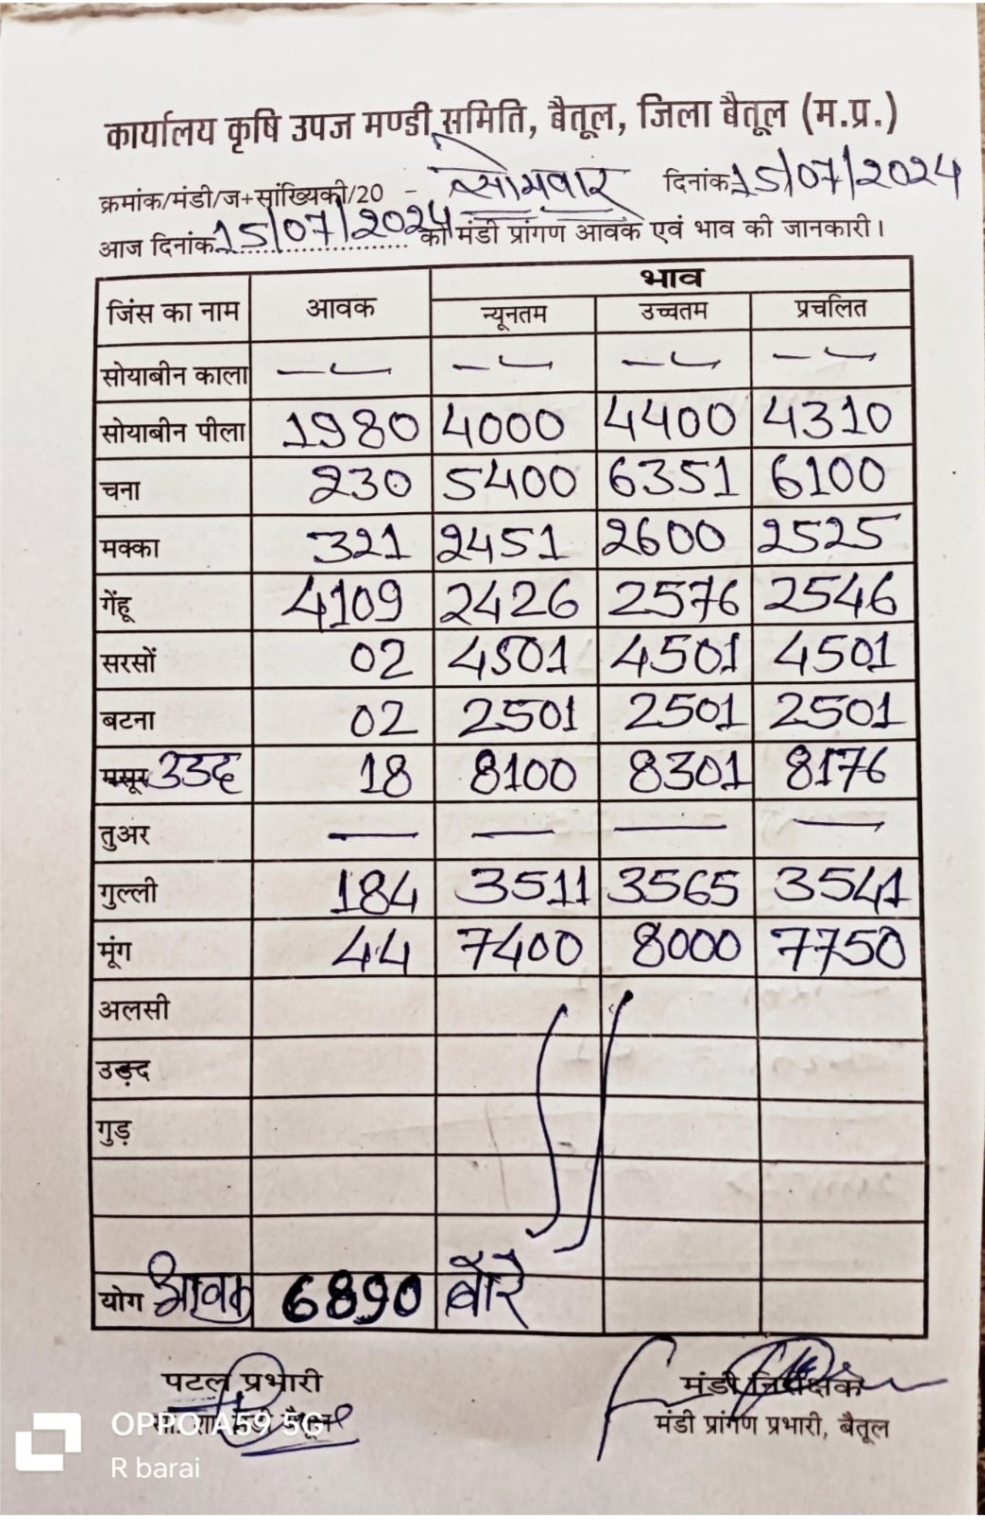 कार्यालय कृषि उपज मण्डी समिति, बैतूल, जिला बैतूल (म.प्र.)
क्रमांक/मंडी/ज+सांख्यिकी/20 - सोमवार दिनांक 15/07/2024
आज दिनांक 15/07/2024 को मंडी प्रांगण आवक एवं भाव की जानकारी।
जिंस का नाम आवक भाव
न्यूनतम उच्चतम प्रचलित
सोयाबीन काला — — — —
सोयाबीन पीला 1980 4000 4400 4310
चना 230 5400 6351 6100
मक्का 321 2451 2600 2525
गेंहू 4109 2426 2576 2546
सरसों 02 4501 4501 4501
बटना 02 2501 2501 2501
मसूर उड़द 18 8100 8301 8176
तुअर — — — —
गुल्ली 184 3511 3565 3541
मूंग 44 7400 8000 7750
अलसी
उड़द
गुड़
योग आवक 6890 बोरे
पटल प्रभारी मंडी निरीक्षक
बैतूल मंडी प्रांगण प्रभारी, बैतूल
OPPO A59 5G
R barai